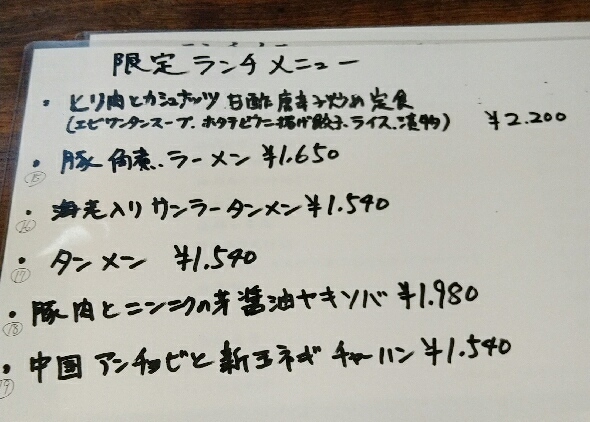 限定ランチメニュー
・とり肉とカシュナッツ 甘酢唐辛子炒め定食
(エビワンタンスープ、ホタテとウニ揚げ餃子、ライス、漬物) ¥2.200
・豚角煮、ラーメン ¥1.650
15
・海老入りサンラータンメン ¥1.540
16
・タンメン ¥1.540
17
・豚肉とニンニクの芽醤油ヤキソバ ¥1.980
18
・中国アンチョビと新玉ネギチャーハン ¥1.540
19